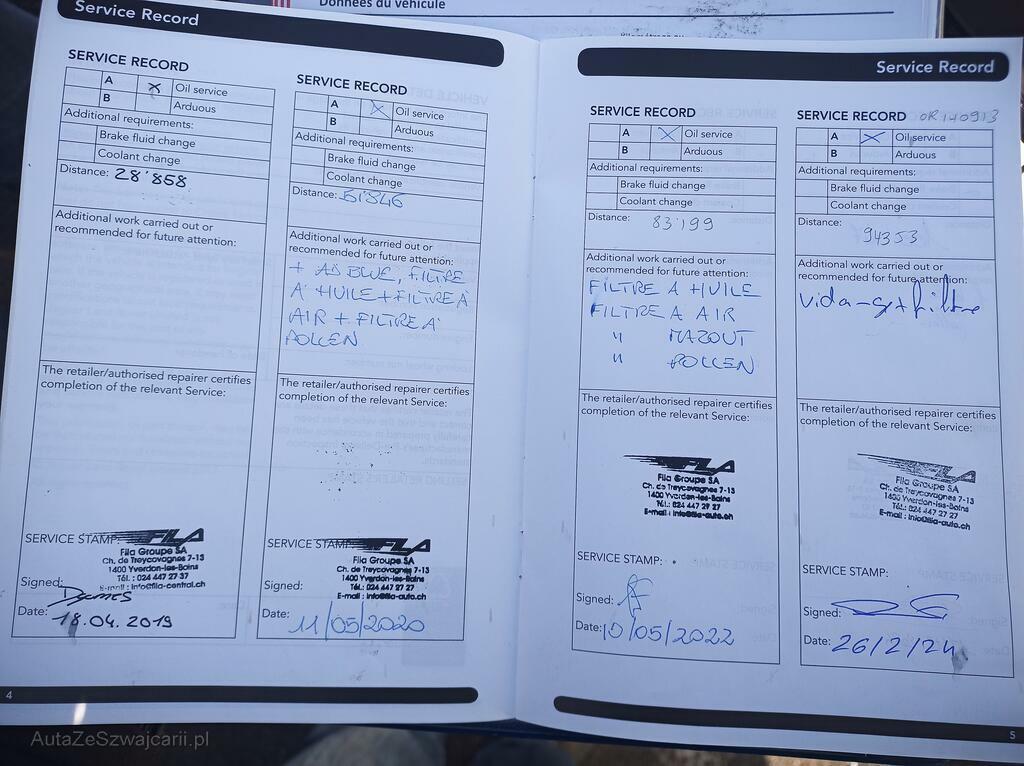 Données du véhicule
Service Record
SERVICE RECORD
A Oil service
B Arduous
Additional requirements:
Brake fluid change
Coolant change
Distance: 28'858
Additional work carried out or
recommended for future attention:
The retailer/authorised repairer certifies
completion of the relevant Service:
SERVICE STAMP:
FILA
Fila Groupe SA
Ch. de Treycovagnes 7-13
1400 Yverdon-les-Bains
Tél. : 024 447 27 37
E-mail : info@fila-central.ch
Signed:
Date: 18.04.2019
4
SERVICE RECORD
A Oil service
B Arduous
Additional requirements:
Brake fluid change
Coolant change
Distance:
Additional work carried out or
recommended for future attention:
+ AD BLUE, FILTRE
A HUILE + FILTRE A
AIR + FILTRE A
POLLEN
The retailer/authorised repairer certifies
completion of the relevant Service:
SERVICE STAMP:
FILA
Fila Groupe SA
Ch. de Treycovagnes 7-13
1400 Yverdon-les-Bains
Tél.: 024 447 27 27
E-mail : info@fila-auto.ch
Signed:
Date: 11/05/2020
Service Record
SERVICE RECORD
A Oil service
B Arduous
Additional requirements:
Brake fluid change
Coolant change
Distance: 83'199
Additional work carried out or
recommended for future attention:
FILTRE A HUILE
FILTRE A AIR
" MAZOUT
" POLLEN
The retailer/authorised repairer certifies
completion of the relevant Service:
FILA
Fila Groupe SA
Ch. de Treycovagnes 7-13
1400 Yverdon-les-Bains
Tél.: 024 447 27 27
E-mail : info@fila-auto.ch
SERVICE STAMP:
Signed:
Date: 10/05/2022
SERVICE RECORD OR 140913
A Oil service
B Arduous
Additional requirements:
Brake fluid change
Coolant change
Distance: 94353
Additional work carried out or
recommended for future attention:
vidange + filtre
The retailer/authorised repairer certifies
completion of the relevant Service:
FILA
Fila Groupe SA
Ch. de Treycovagnes 7-13
1400 Yverdon-les-Bains
Tél.: 024 447 27 27
E-mail : info@fila-auto.ch
SERVICE STAMP:
Signed:
Date: 26/2/24
5
AutaZeSzwajcarii.pl